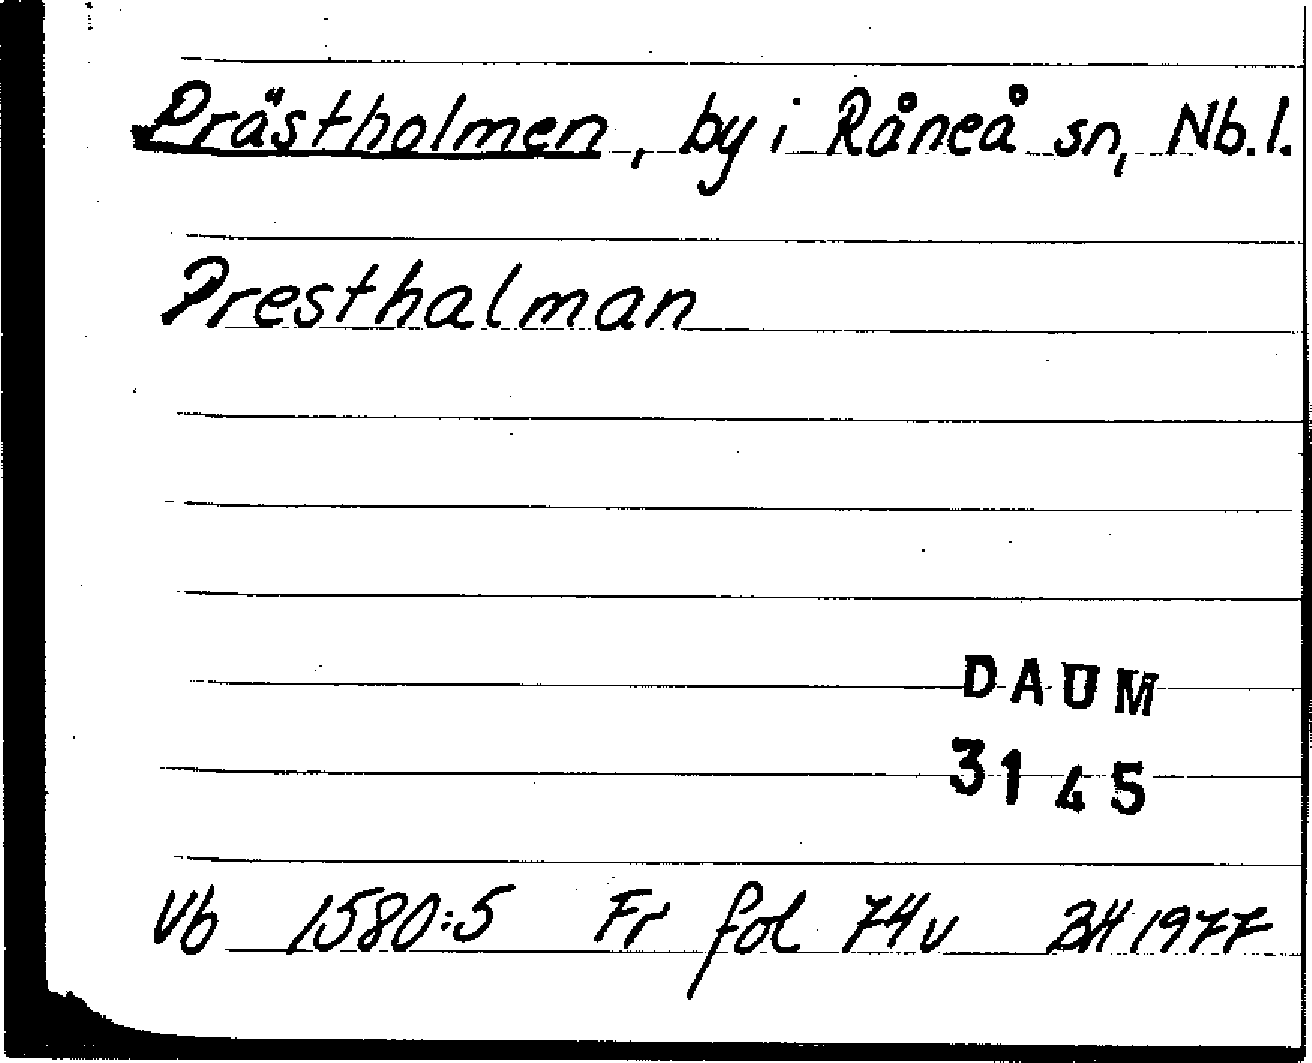 Prästholmen, by i Råneå sn, Nb.l.
Presthalman
DAUM
3145
Vb 1580:5 Fr fol 74v BH 1977